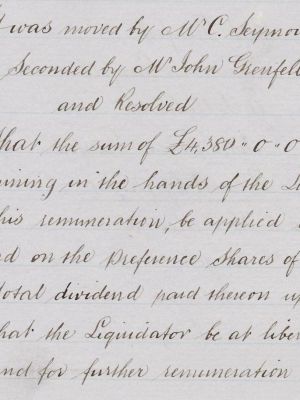 t was moved by Mr C. Seymou
Seconded by Mr John Grenfell
and Resolved
That the sum of £4,380 " 0 " 0
ining in the hands of the L
his remuneration, be applied
d on the Preference Shares of
total dividend paid thereon up
That the Liquidator be at liber
nd for further remuneration